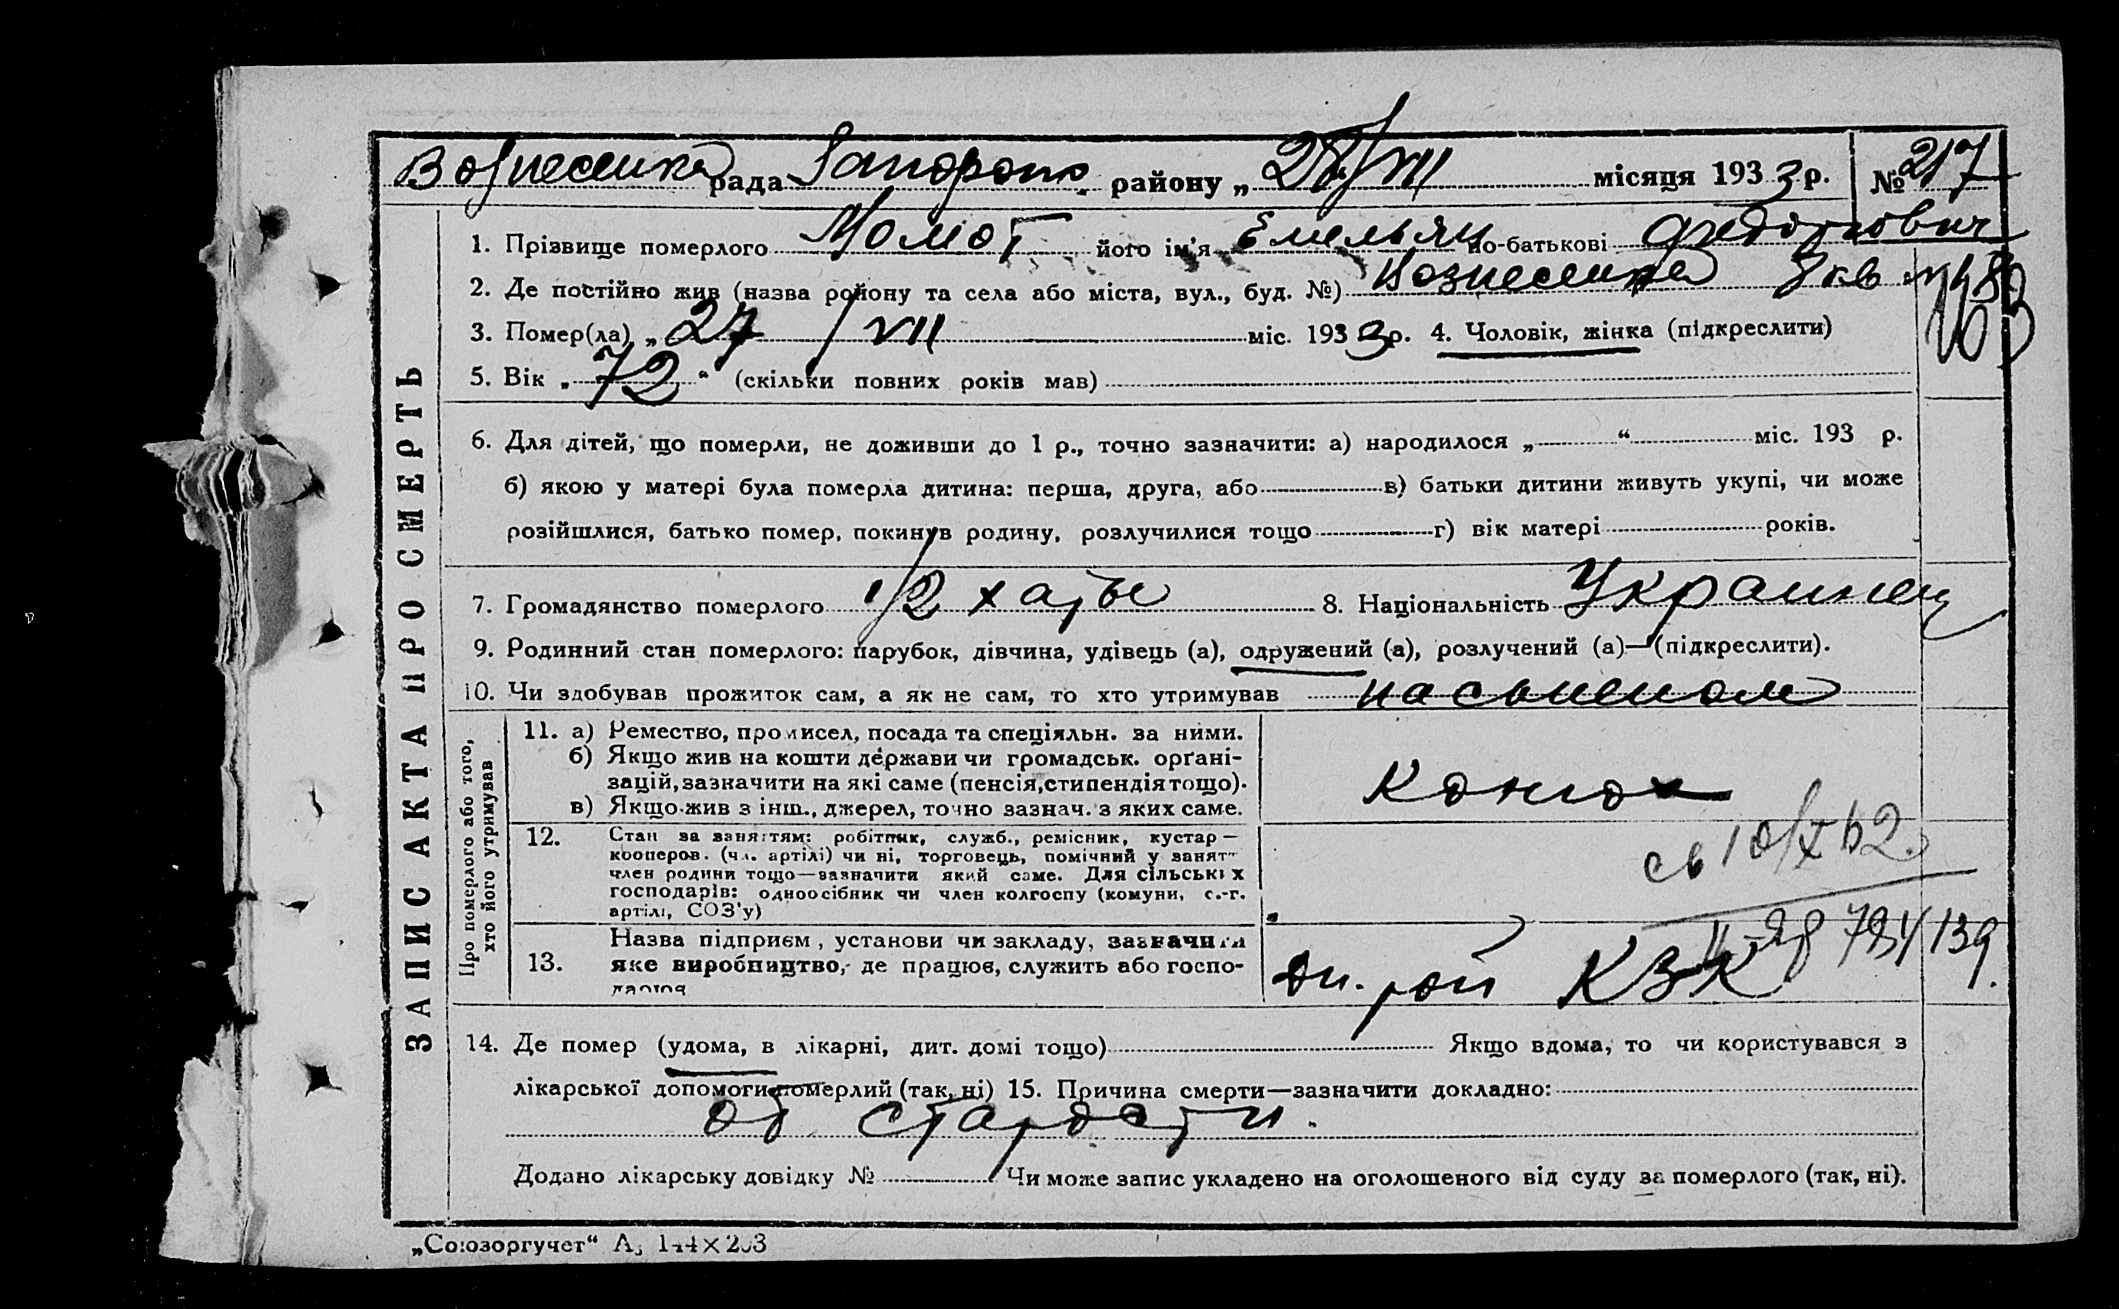 Вознесенка рада Запорожс. району „ 28/VII місяця 193 3 р. № 217
1. Прізвище померлого Момот його ім'я Емельян по-батькові Федотович
2. Де постійно жив (назва району та села або міста, вул., буд. №) Вознесенка 3 кв
3. Помер(ла) „ 27 / VII міс. 193 3 р. 4. Чоловік, жінка (підкреслити)
5. Вік „ 72 “ (скільки повних років мав)
6. Для дітей, що померли, не доживши до 1 р., точно зазначити: а) народилося „ “ міс. 193 р.
б) якою у матері була померла дитина: перша, друга, або в) батьки дитини живуть укупі, чи може
розійшлися, батько помер, покинув родину, розлучилися тощо г) вік матері років.
7. Громадянство померлого 1/2 хаты 8. Національність Украинец
9. Родинний стан померлого: парубок, дівчина, удівець (а), одружений (а), розлучений (а)—(підкреслити).
10. Чи здобував прожиток сам, а як не сам, то хто утримував
ЗАПИС АКТА ПРО СМЕРТЬ
Про померлого або того,
хто його утримував
11. а) Ремество, промисел, посада та спеціяльн. за ними.
б) Якщо жив на кошти держави чи громадськ. орґані-
зацій, зазначити на які саме (пенсія, стипендія тощо).
в) Якщо жив з інш., джерел, точно зазнач. з яких саме.
Конюх
12. Стан за заняттям: робітник, служб., ремісник, кустар —
кооперов. (чл. артілі) чи ні, торговець, помічний у занят-
член родини тощо—зазначити який саме. Для сільських
господарів: одноосібник чи член колгоспу (комуни, с.-г.
артілі, СОЗ'у)
св 10/X 62.
13. Назва підприєм, установи чи закладу, зазначити
яке виробництво, де працює, служить або госпо-
дарює
Дн. рой КЗК
14. Де помер (удома, в лікарні, дит. домі тощо) Якщо вдома, то чи користувався з
лікарської допомоги померлий (так, ні) 15. Причина смерти—зазначити докладно:
от старости.
Додано лікарську довідку № Чи може запис укладено на оголошеного від суду за померлого (так, ні).
„Союзоргучет“